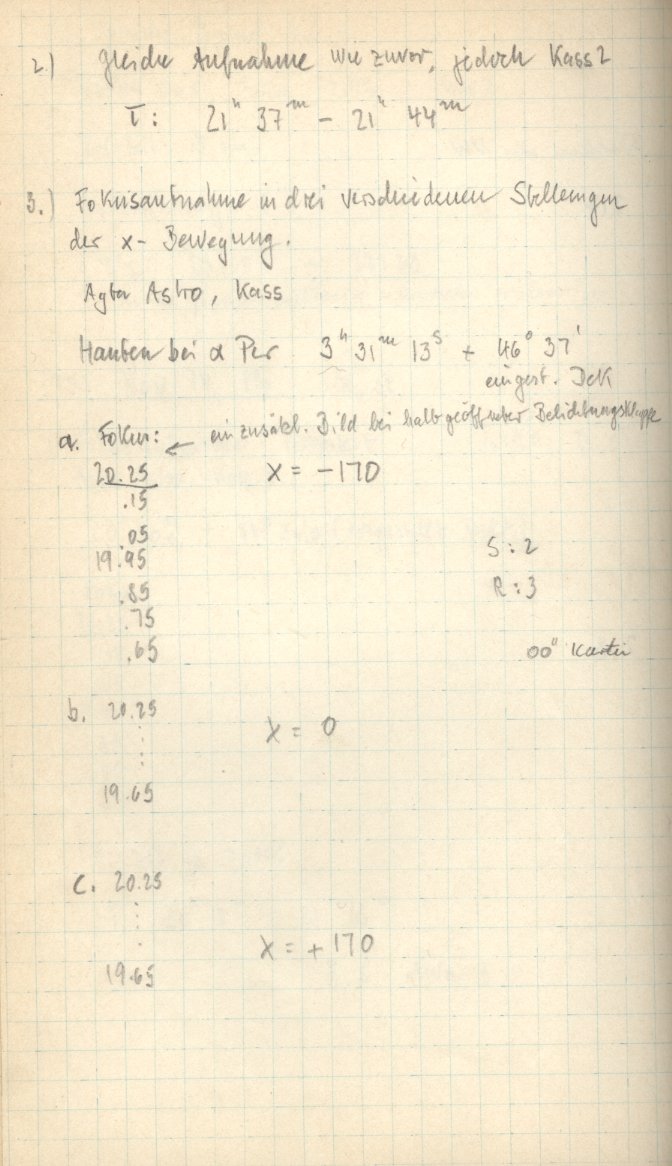 2) gleiche Aufnahme wie zuvor, jedoch Kass 2
T: 21h 37m – 21h 44m
3.) Fokusaufnahme in drei verschiedenen Stellungen
der x- Bewegung.
Agfa Astro, Kass
Haufen bei α Per 3h 31m 13s + 46° 37'
eingest. Dek
a. Fokus: ← ein zusätzl. Bild bei halb geöffneter Belichtungsklappe
20.25 x = -170
.15
.05
19.95 S: 2
.85 R: 3
.75
.65 00"
b. 20.25
x = 0
19.65
c. 20.25
x = +170
19.65